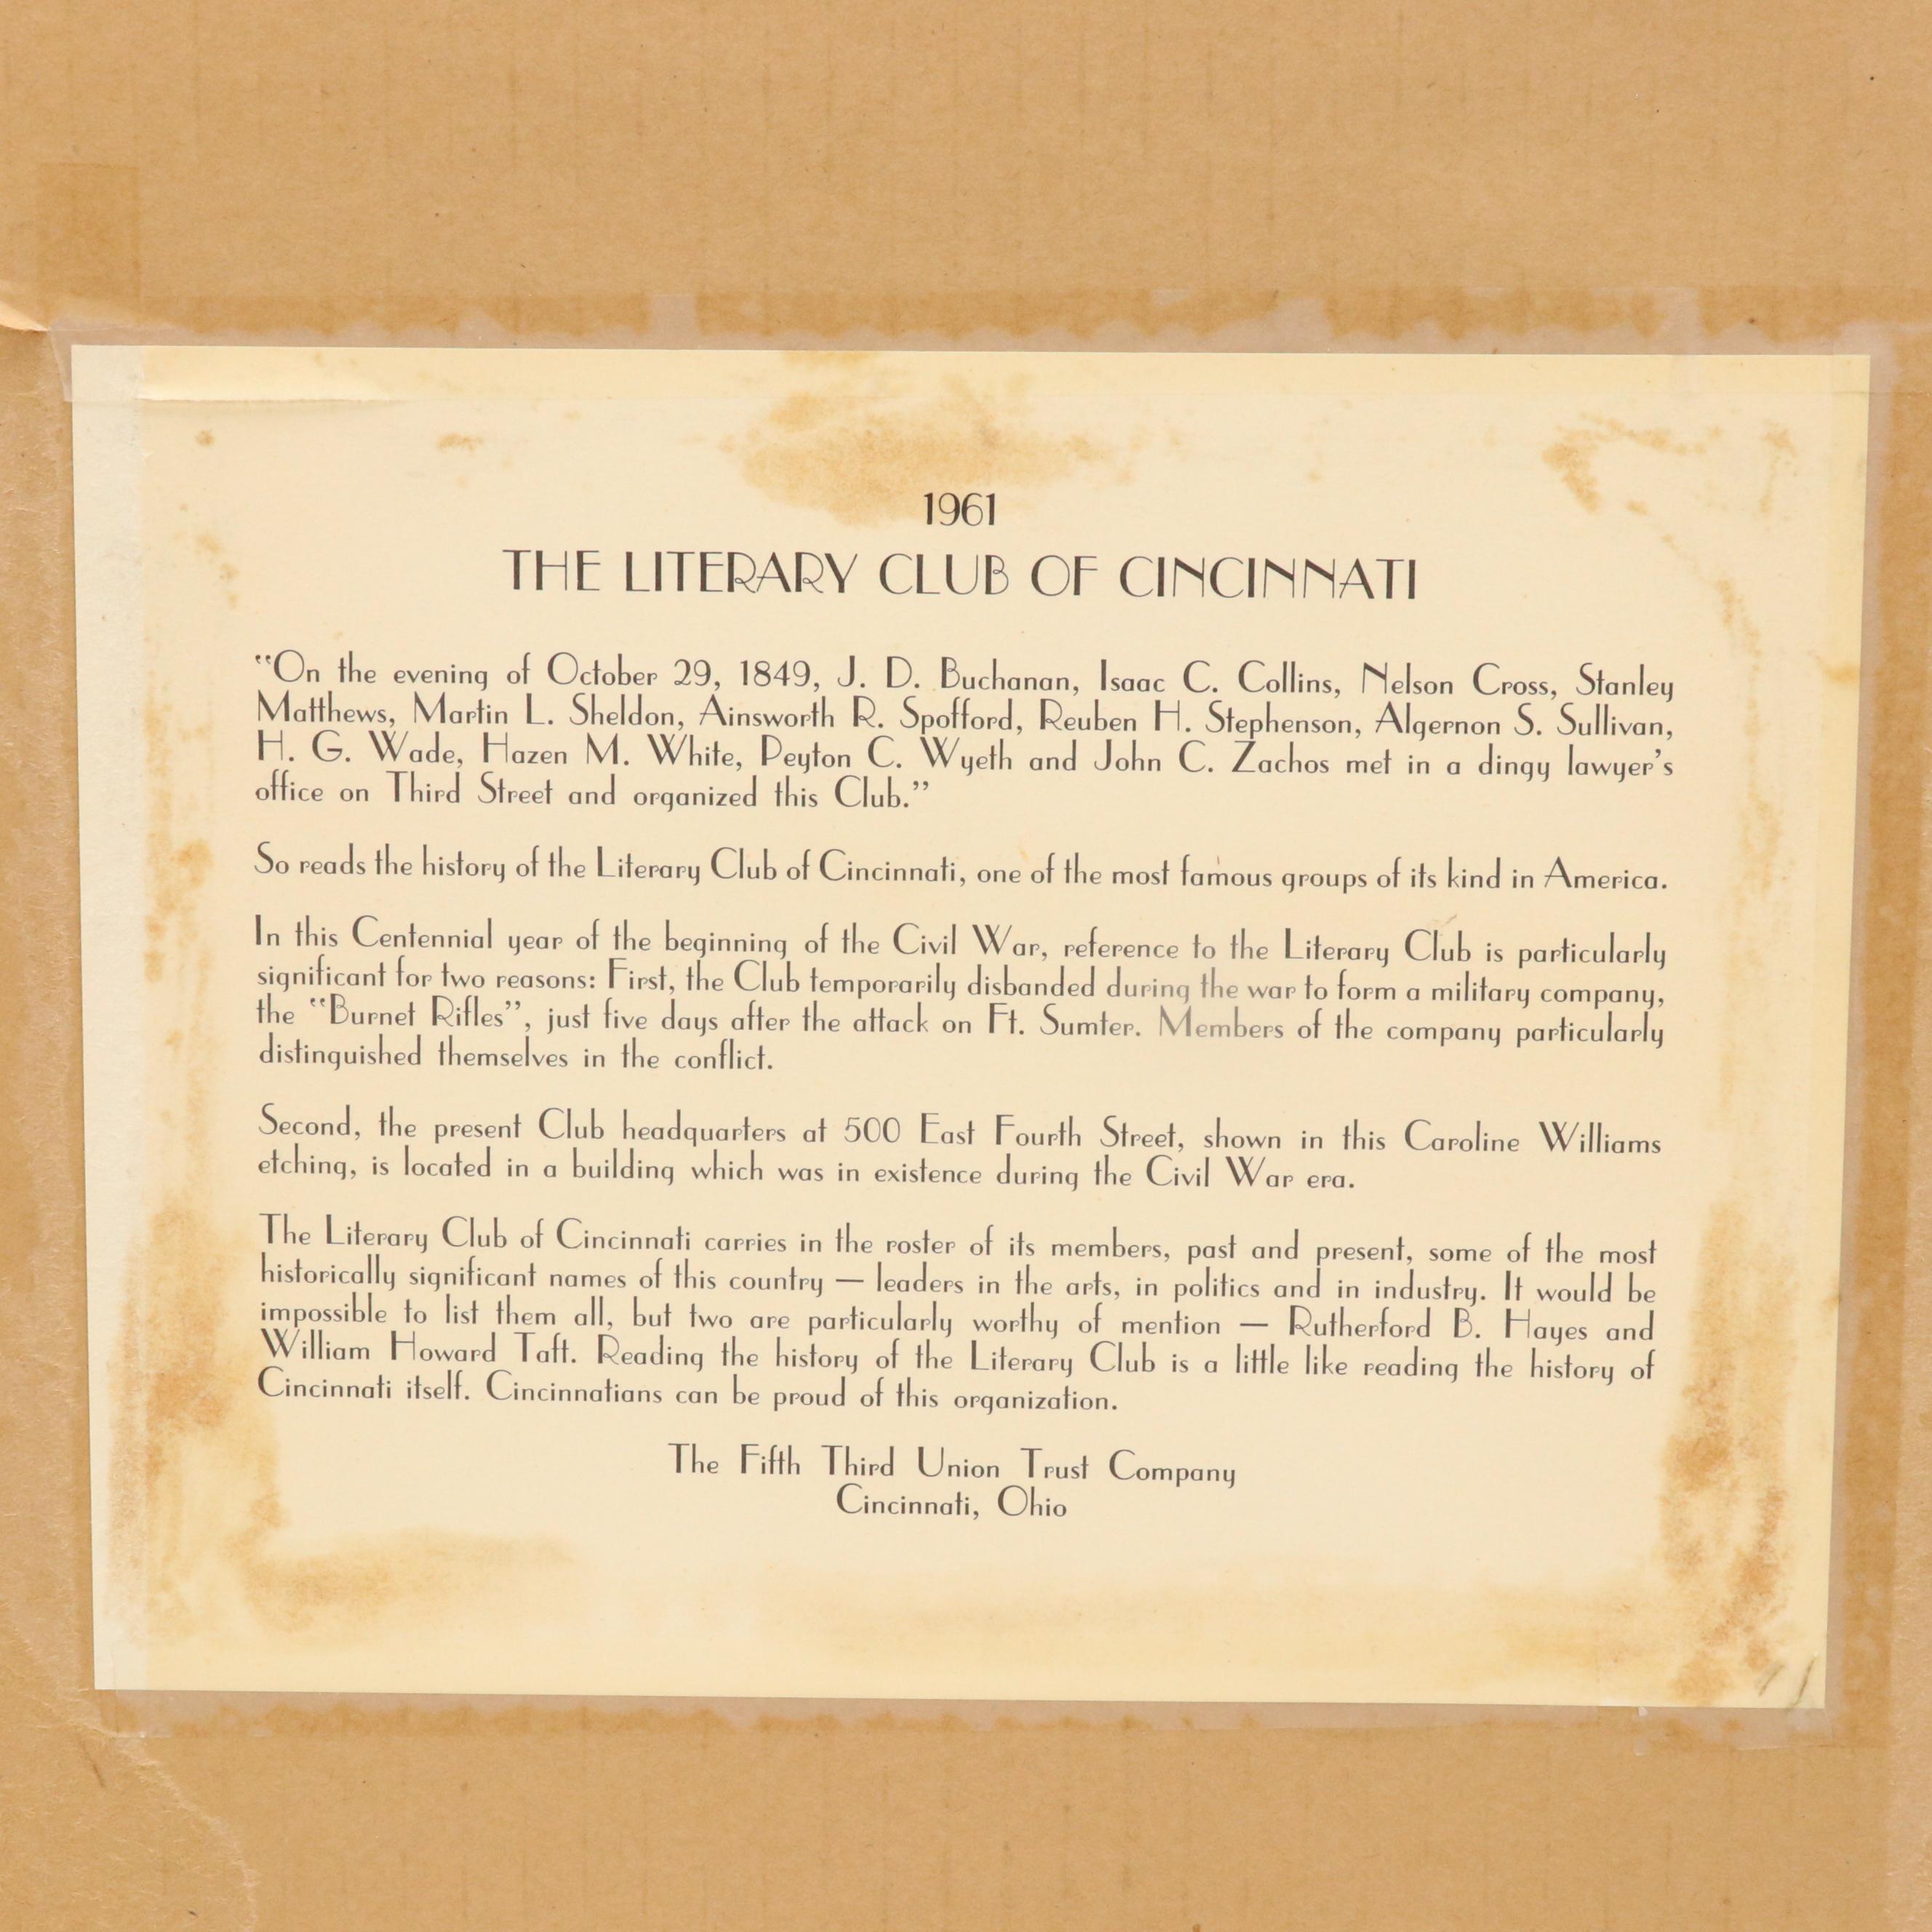 1961
THE LITERARY CLUB OF CINCINNATI
“On the evening of October 29, 1849, J. D. Buchanan, Isaac C. Collins, Nelson Cross, Stanley
Matthews, Martin L. Sheldon, Ainsworth R. Spofford, Reuben H. Stephenson, Algernon S. Sullivan,
H. G. Wade, Hazen M. White, Peyton C. Wyeth and John C. Zachos met in a dingy lawyer’s
office on Third Street and organized this Club.”
So reads the history of the Literary Club of Cincinnati, one of the most famous groups of its kind in America.
In this Centennial year of the beginning of the Civil War, reference to the Literary Club is particularly
significant for two reasons: First, the Club temporarily disbanded during the war to form a military company,
the “Burnet Rifles”, just five days after the attack on Ft. Sumter. Members of the company particularly
distinguished themselves in the conflict.
Second, the present Club headquarters at 500 East Fourth Street, shown in this Caroline Williams
etching, is located in a building which was in existence during the Civil War era.
The Literary Club of Cincinnati carries in the roster of its members, past and present, some of the most
historically significant names of this country — leaders in the arts, in politics and in industry. It would be
impossible to list them all, but two are particularly worthy of mention — Rutherford B. Hayes and
William Howard Taft. Reading the history of the Literary Club is a little like reading the history of
Cincinnati itself. Cincinnatians can be proud of this organization.
The Fifth Third Union Trust Company
Cincinnati, Ohio